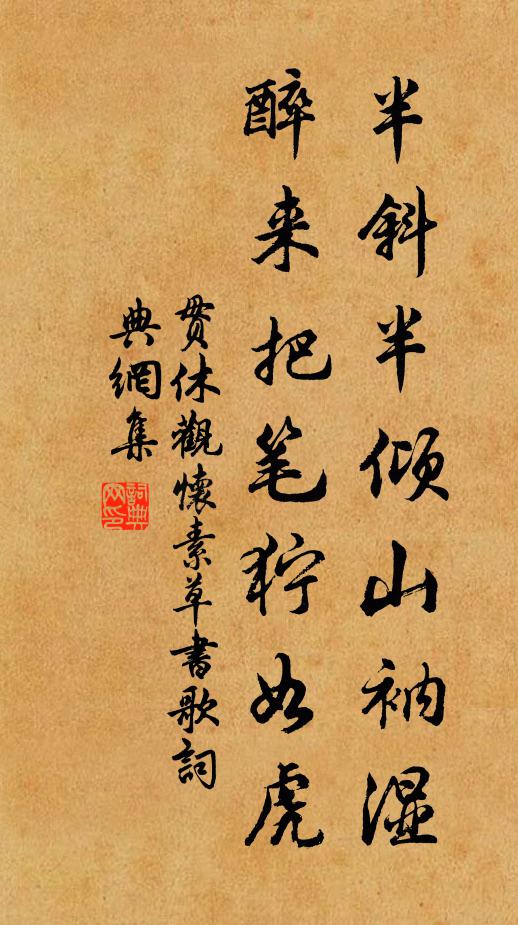 半斜半倾山衲湿
醉来把笔狞如虎
贯休觀懷素草書歌詞
典網集
詞典
网印